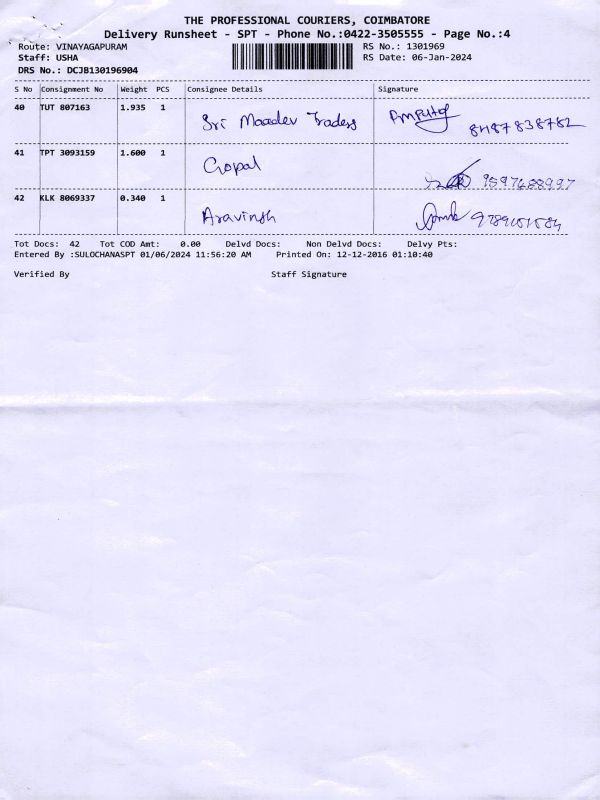 THE PROFESSIONAL COURIERS, COIMBATORE
Delivery Runsheet - SPT - Phone No.:0422-3505555 - Page No.:4
Route: VINAYAGAPURAM RS No.: 1301969
Staff: USHA RS Date: 06-Jan-2024
DRS No.: DCJB130196904
S No Consignment No Weight PCS Consignee Details Signature
40 TUT 807163 1.935 1
Sri Maadev Traders 8487838782
41 TPT 3093159 1.600 1
Gopal
42 KLK 8069337 0.340 1
Aravinth
Tot Docs: 42 Tot COD Amt: 0.00 Delvd Docs: Non Delvd Docs: Delvy Pts:
Entered By :SULOCHANASPT 01/06/2024 11:56:20 AM Printed On: 12-12-2016 01:10:40
Verified By Staff Signature